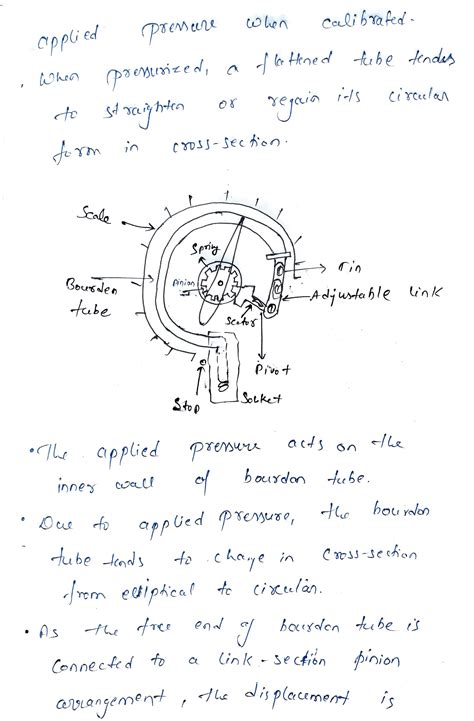 applied pressure when calibrated.
. When pressurized, a flattened tube tends
to straighten or regain its circular
form in cross-section.
Scale
Spring
Pinion
Bourdon
tube
Tin
Adjustable link
Sector
Pivot
Stop
Socket
• The applied pressure acts on the
inner wall of bourdon tube.
• Due to applied pressure, the bourdon
tube tends to change in cross-section
from elliptical to circular.
• As the free end of bourdon tube is
connected to a link-section pinion
arrangement, the displacement is